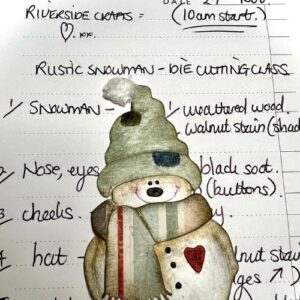 DATE 27 Nov.
RIVERSIDE CRAFTS = (10am start.)
♡.xx.
RUSTIC SNOWMAN - DIE CUTTING CLASS
1/ SNOWMAN - 1/ weathered wood.
walnut stain (shad
2 Nose, eyes black soot.
(buttons).
3 cheeks.
4 hat - nut stain
ges ↗)